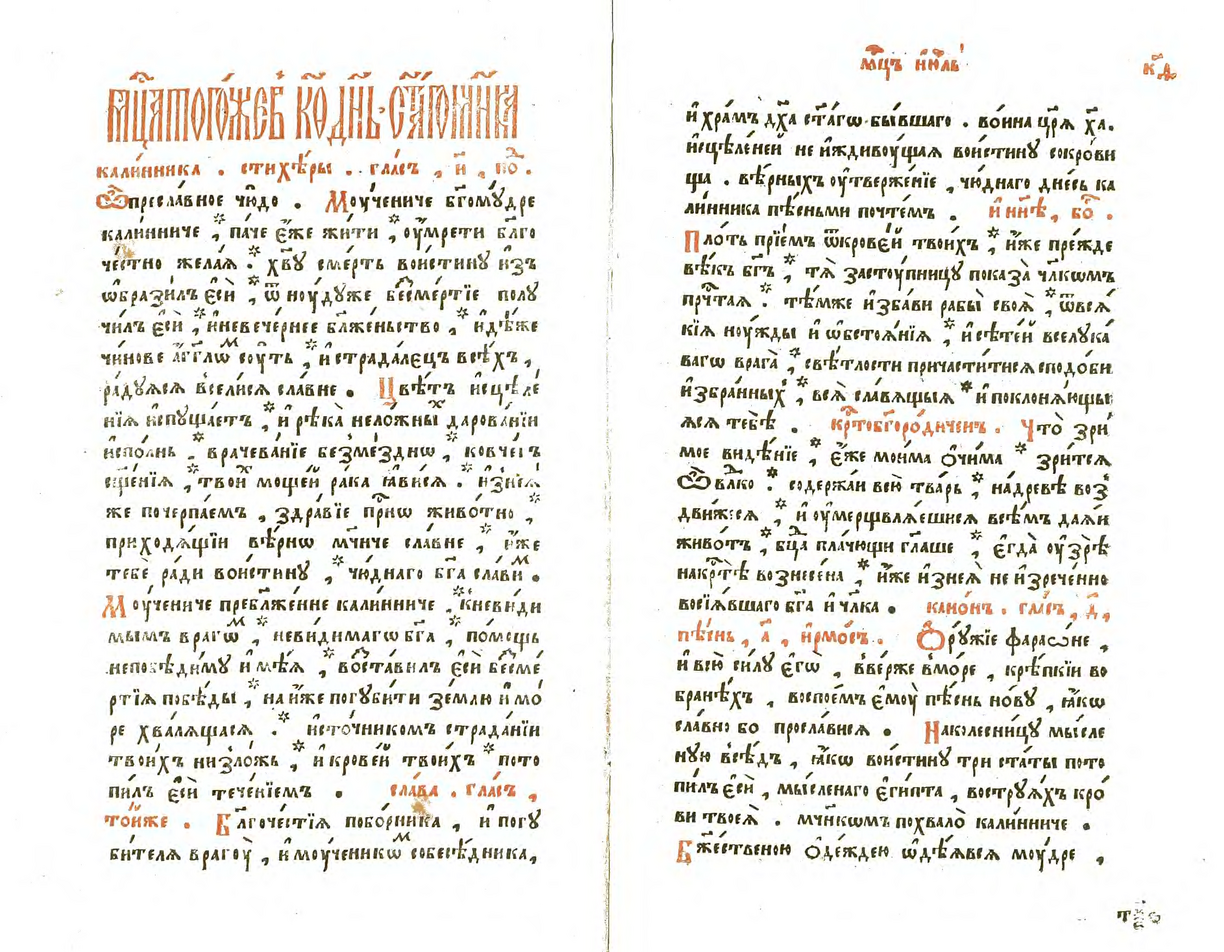 мц҃а тогоже въ к҃ѳ дн҃ь. ст҃аго мч҃ника
кали́нника . стихѣ́ры . гла́съ , и҃ , по́д .
Ѽ пресла́вное чю́до . Моу́чениче бг҃ому́дре
кали́нниче ,* па́че є́же жи́ти ,* оу҆мре́ти бл҃го
че́стно жела́я .* хв҃у сме́рть вои́стину и҆з̾
ѡ҆брази́лъ є҆сѝ ,* ѿ ноу́дуже бесме́ртїе полу
чи́лъ є҆сѝ ,* и҆ невече́рнее блаже́ньство ,* и҆дѣ́же
чи́нове а҆́гг҃лѡм соу́ть ,* и҆ страда́лецъ всѣ́хъ ,
ра́дуяся всели́ся сла́вне . Цвѣ́тъ и҆сцѣле́
нїя и҆спуща́етъ ,* и҆ рѣка̀ нело́жныхъ дарова́нїи
и҆спо́лнь .* врачева́нїе безме́зднѡ ,* ковче́гъ
сщ҃е́нїя ,* твои́х моще́й ра́ка ꙗ҆ви́ся .* и҆з̾нея́
же почерпа́емъ , здра́вїе при́снѡ живо́тно ,*
приходя́щїи вѣ́рнѡ мч҃ниче сла́вне ,* и҆́же
тебѐ ра́ди вои́стину ,* чю́днаго бг҃а сла́вим .
Моу́чениче преблаже́нне кали́нниче ,* к̾неви́ди
мымъ врагѡ́м ,* неви́димагѡ бг҃а ,* по́мощь
непобѣди́му и҆мѣ́я ,* воста́вилъ є҆сѝ бесме́
ртїя побѣ́ды ,* на и҆́же погуби́ти зе́млю и҆ мо́
ре хваля́щася .* и҆сто́чникомъ страда́нїи
твои́хъ низло́жь ,* и҆ крове́й твои́хъ * пото
пи́лъ є҆сѝ тече́нїемъ . сла́ва . гла́съ ,
то́йже . Бл҃гоче́стїя побо́рника , и҆ погу
би́теля врагоу́ , и҆ моу́ченикѡм собесѣ́дника ,
мц҃ъ и҆ю́ль
к҃д
и҆ хра́мъ дх҃а ст҃а́гѡ бы́вшаго . во́ина цр҃я хр҃а .
и҆сцѣле́ней не и҆ждивоу́щая вои́стину сокро́ви
ща . вѣ́рныхъ оу҆твержє́нїе , чю́днаго дне́сь ка
ли́нника пѣ́сньми почте́мъ . и҆ ны́нѣ , бо́г .
Пло́ть прїе́мъ ѿ крове́й твои́хъ ,* и҆́же пре́жде
вѣ́къ бг҃ъ ,* тя̀ засту́пницу показа̀ чл҃кѡмъ
преч҃тая .* тѣ́мже и҆зба́ви рабы̀ своя̀ ,* ѿ вся́
кїя ноу́жды и҆ ѡ҆бстоя́нїя ,* и҆ сѣте́й вселука́
вагѡ врага̀ ,* свѣ́тлости причасти́тися сподо́би
и҆збра́нных ,* вся̀ сла́вящыя * и҆ покланя́ющы
яся тебѣ̀ . крт҃обг҃оро́диченъ . Что̀ зри́
мое видѣ́нїе ,* є́же мои́ма о҆чи́ма * зри́тся
Ѽ влⷣко .* содержа́и всю̀ тва́рь ,* на дре́вѣ воз̾
дви́жеся ,* и҆ оу҆мерщвля́ешися всѣ́мъ дая́и
живо́тъ ,* бц҃а пла́чющи гл҃аше ,* є҆гда̀ оу҆зрѣ̀
на крт҃ѣ вознесе́на ,* и҆́же и҆з̾нея̀ не и҆зрече́нно
возсїя́вшаго бг҃а и҆ чл҃ка . кано́нъ . гла́съ , д҃ ,
пѣ́снь , а҃ , и҆рмо́съ . Ѻ҆ру́жїе фарао́не ,
и҆ всю̀ си́лу є҆гѡ̀ , вве́рже в̾мо́ре , крѣ́пкїи во
бране́хъ , воспое́мъ є҆моу̀ пѣ́снь но́ву , ꙗ҆́кѡ
сла́вно бо просла́вися . На колесни́цу мы́сле
ную всѣ́дъ , ꙗ҆́кѡ вои́стину триста́ты пото
пи́лъ є҆сѝ , мы́сленаго є҆ги́пта , во струя́хъ кро́
ви твоея̀ . мч҃никѡмъ похвало̀ кали́нниче .
Бж҃е́ственою ѻ҆де́ждею ѡ҆дѣ́явся моу́дре ,